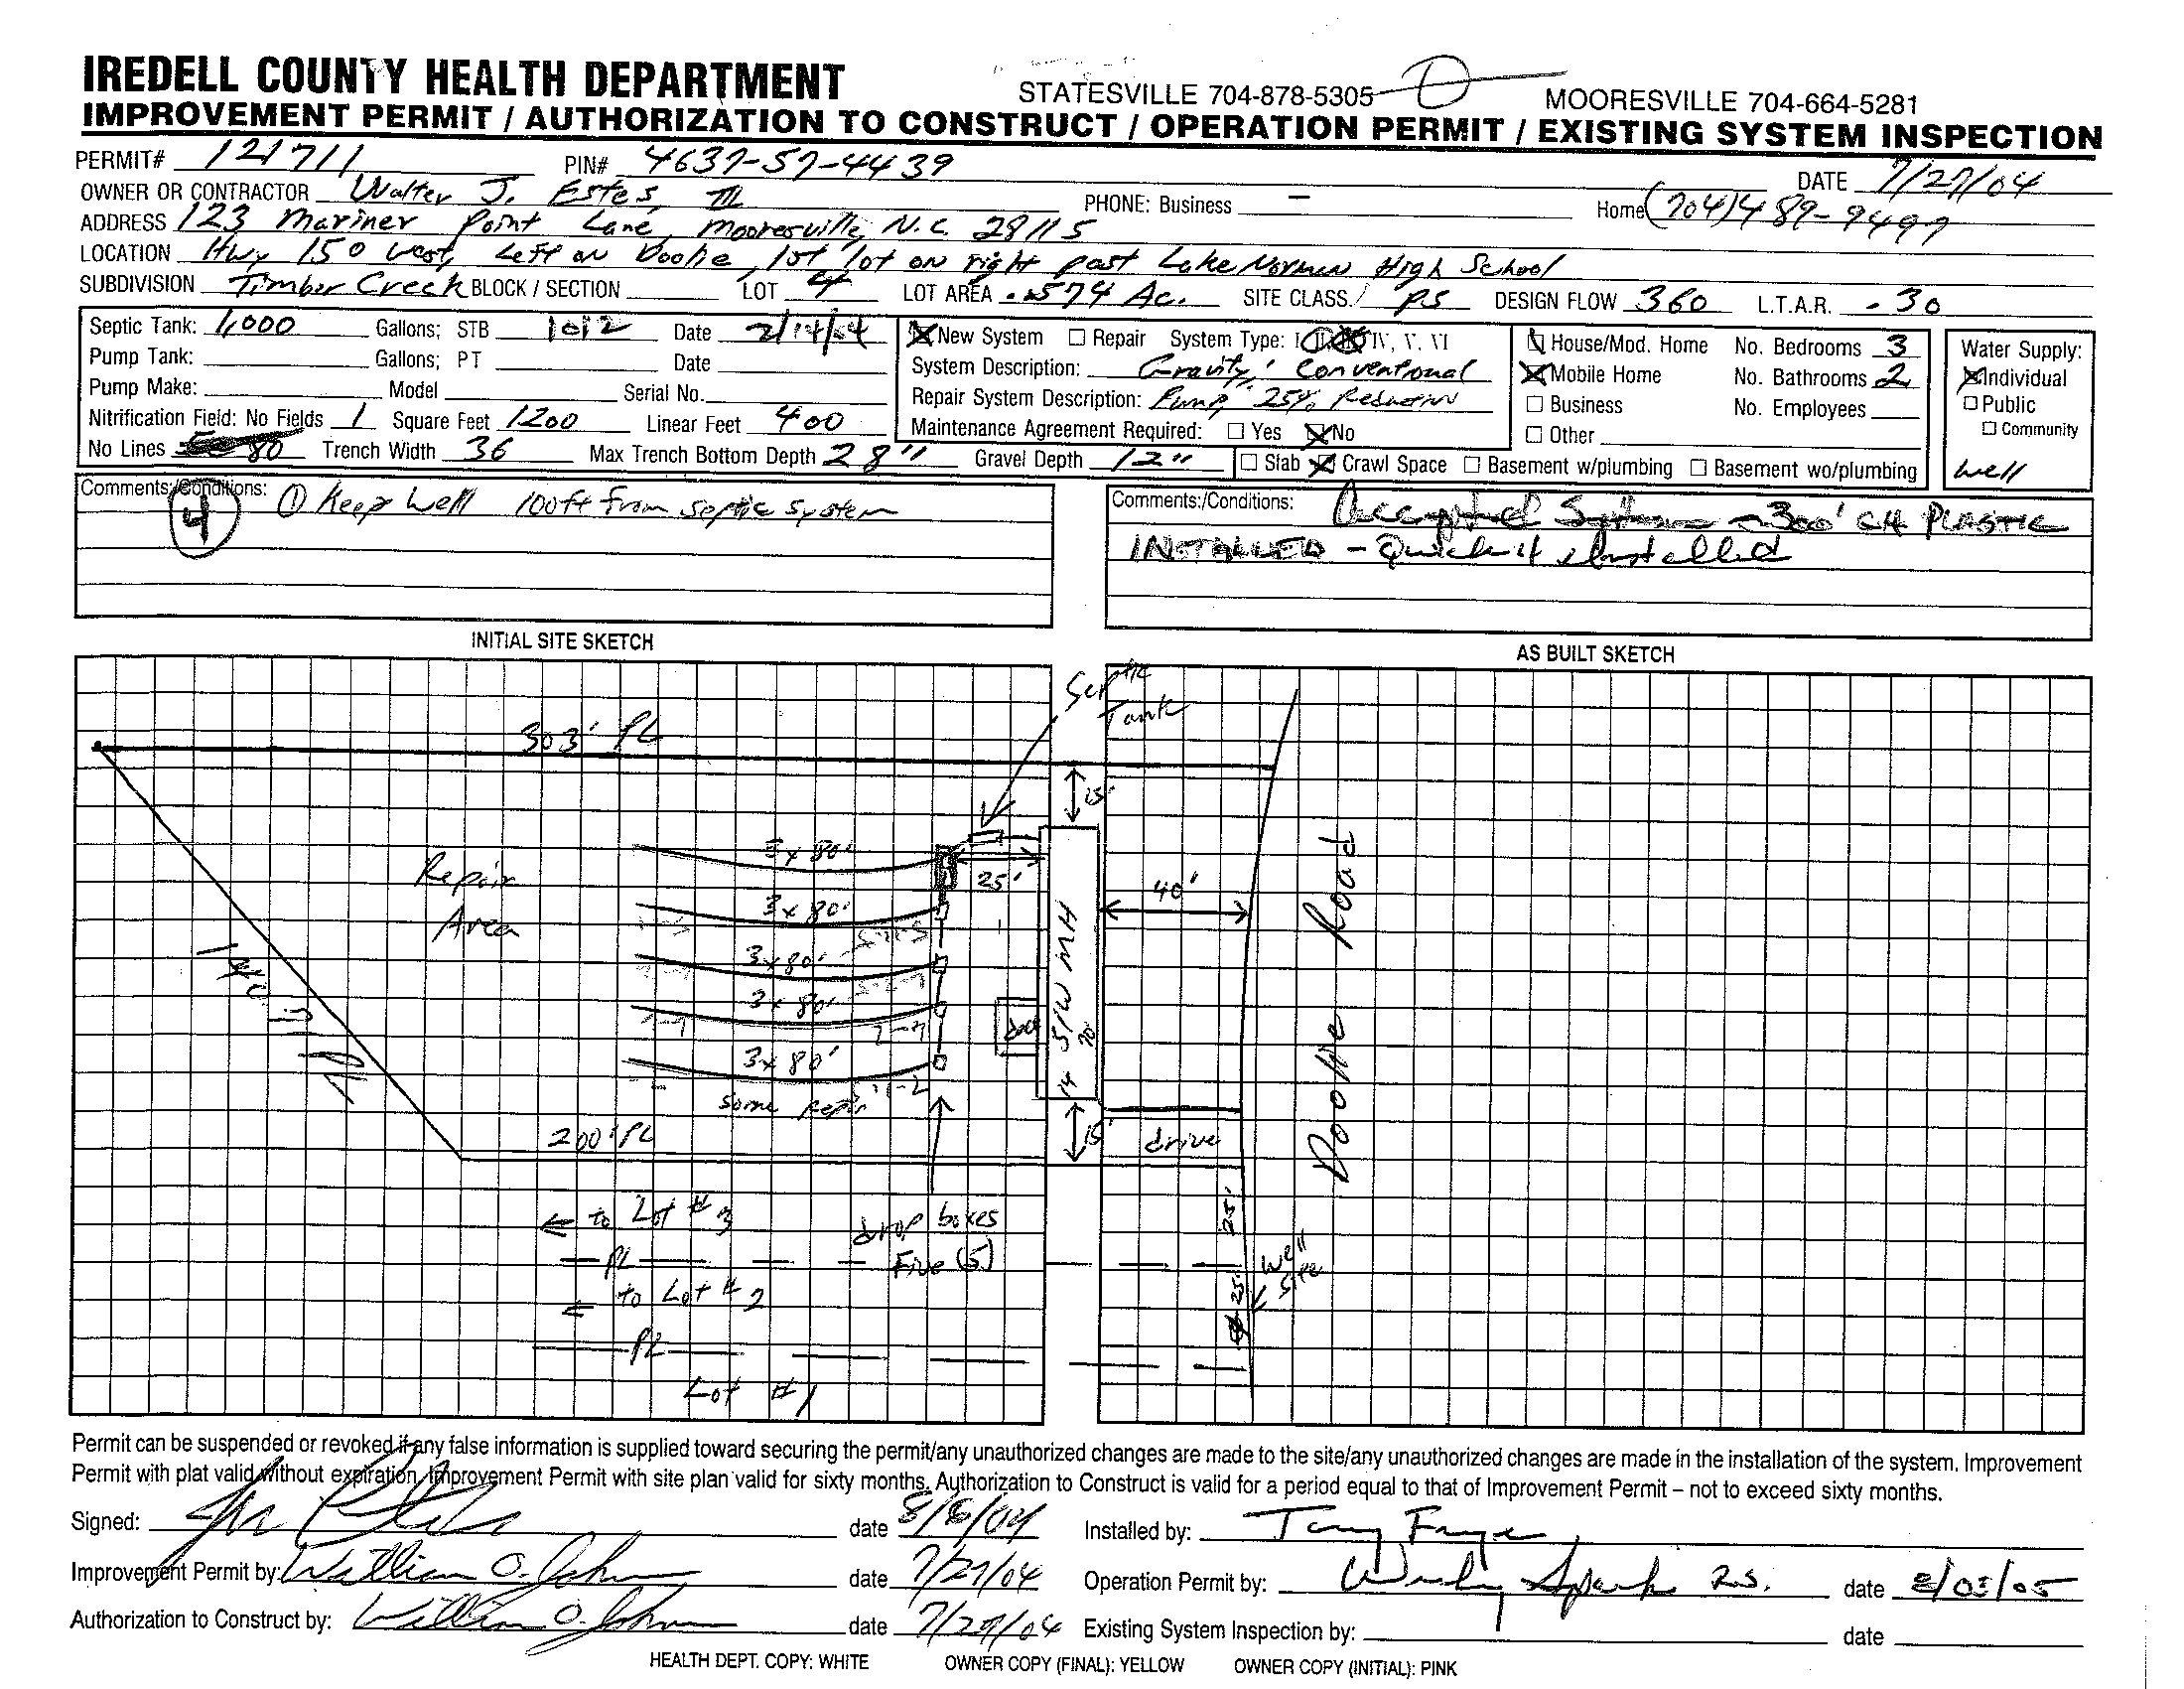 IREDELL COUNTY HEALTH DEPARTMENT
STATESVILLE 704-878-5305 MOORESVILLE 704-664-5281
IMPROVEMENT PERMIT / AUTHORIZATION TO CONSTRUCT / OPERATION PERMIT / EXISTING SYSTEM INSPECTION
PERMIT# 121711 PIN# 4637-57-4439 DATE 7/27/04
OWNER OR CONTRACTOR Walter J. Estes, III PHONE: Business – Home (704) 489-9497
ADDRESS 123 Mariner Point Lane, Mooresville, N.C. 28115
LOCATION Hwy 150 West, Left on Doolie, 1st lot on right past Lake Norman High School
SUBDIVISION Timber Creek BLOCK / SECTION LOT 4 LOT AREA .574 Ac. SITE CLASS. PS DESIGN FLOW 360 L.T.A.R. .30
Septic Tank: 1,000 Gallons; STB 1012 Date 2/14/04
Pump Tank: Gallons; PT Date
Pump Make: Model Serial No.
Nitrification Field: No Fields 1 Square Feet 1200 Linear Feet 400
No Lines 80 Trench Width 36 Max Trench Bottom Depth 28" Gravel Depth 12"
New System Repair System Type: I IV, V, VI
System Description: Gravity; Conventional
Repair System Description: Pump, 25% Reduction
Maintenance Agreement Required: Yes No
Slab Crawl Space Basement w/plumbing Basement wo/plumbing
House/Mod. Home No. Bedrooms 3
Mobile Home No. Bathrooms 2
Business No. Employees
Other
Water Supply:
Individual
Public
Community
Well
Comments:/Conditions: ① Keep Well 100ft from septic system
4
Comments:/Conditions: Accepted System – 300' CH PLASTIC
INSTALLED – Quick 4 Installed
INITIAL SITE SKETCH
AS BUILT SKETCH
Septic
Tank
303' PL
15'
3 x 80'
25'
Repair
Area
3 x 80'
40'
3 x 80'
3 x 80'
3 x 80'
deck
14 S/W MH
70
Doolie Road
PL
some repair
200' PL
15'
drive
to Lot #3
drop boxes
Five (5)
25'
PL
Well
Site
to Lot #2
25'
PL
Lot #1
Permit can be suspended or revoked if any false information is supplied toward securing the permit/any unauthorized changes are made to the site/any unauthorized changes are made in the installation of the system. Improvement
Permit with plat valid without expiration. Improvement Permit with site plan valid for sixty months. Authorization to Construct is valid for a period equal to that of Improvement Permit – not to exceed sixty months.
Signed: date 8/6/04 Installed by: Tony Frye
Improvement Permit by: William O. Johnson date 7/27/04 Operation Permit by: R.S. date 8/03/05
Authorization to Construct by: William O. Johnson date 7/27/04 Existing System Inspection by: date
HEALTH DEPT. COPY: WHITE OWNER COPY (FINAL): YELLOW OWNER COPY (INITIAL): PINK